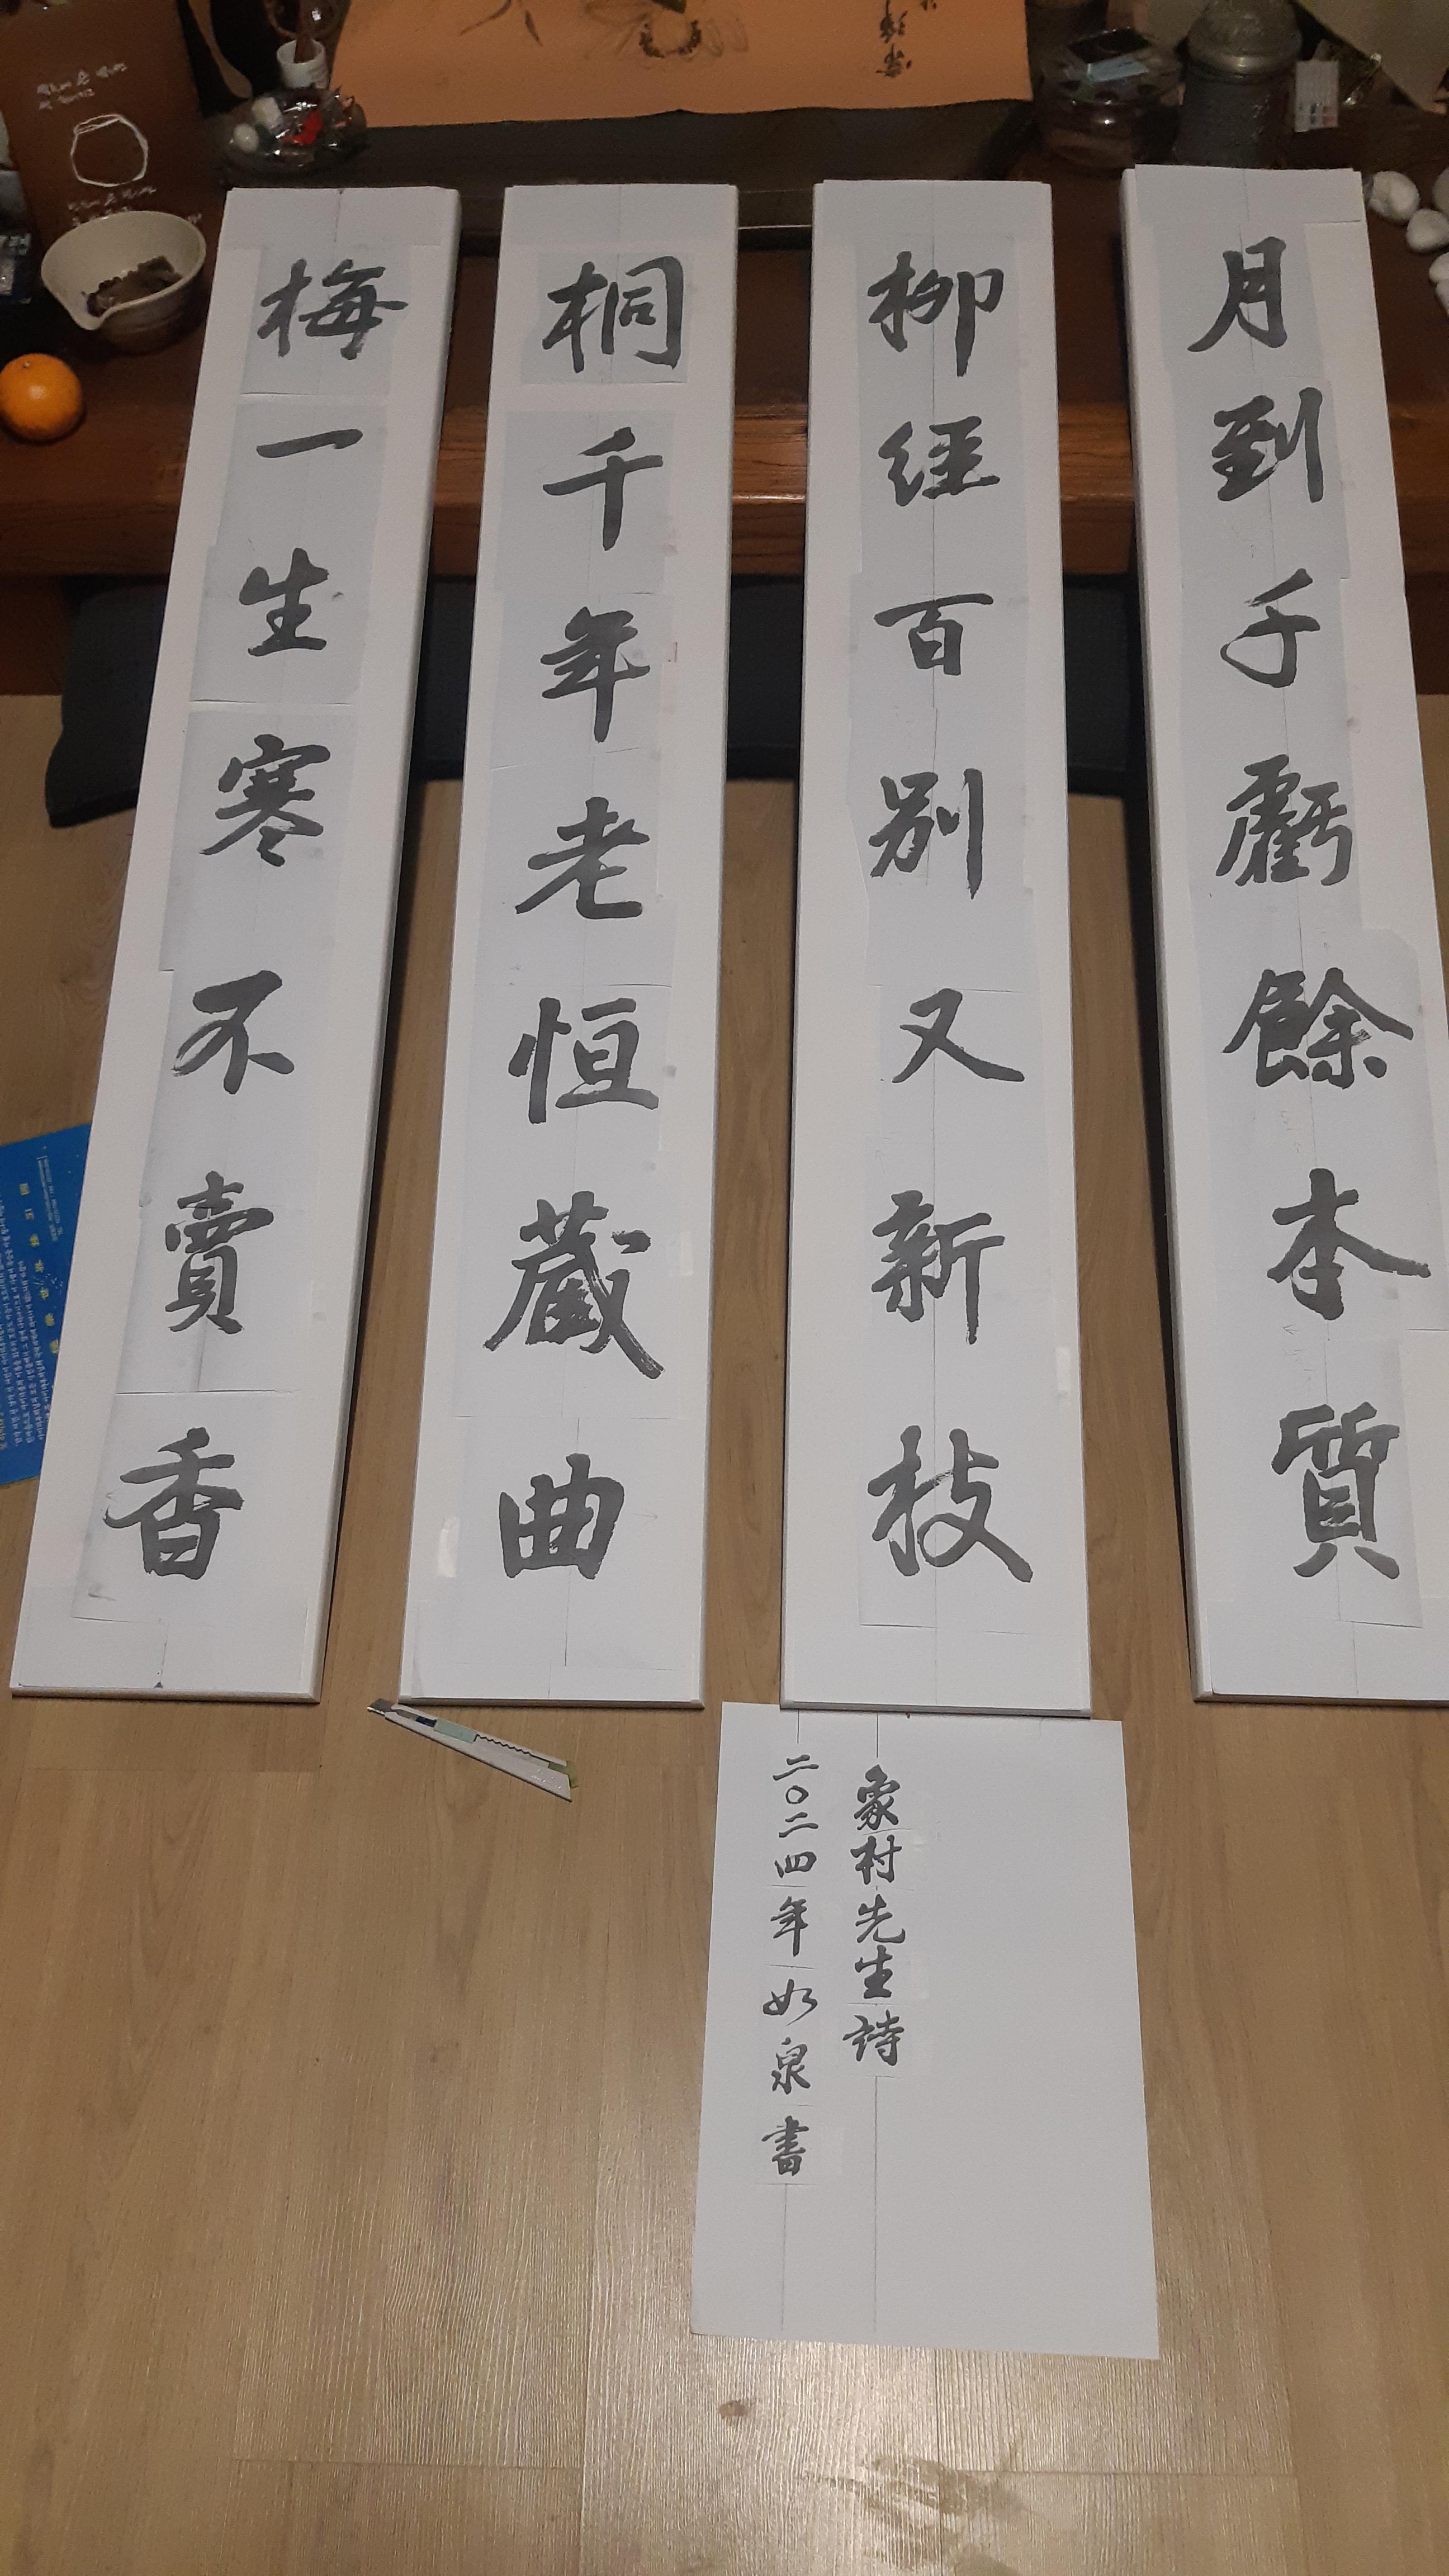 月到千虧餘本質
柳經百別又新枝
桐千年老恒藏曲
梅一生寒不賣香
象村先生詩
二〇二四年如泉書